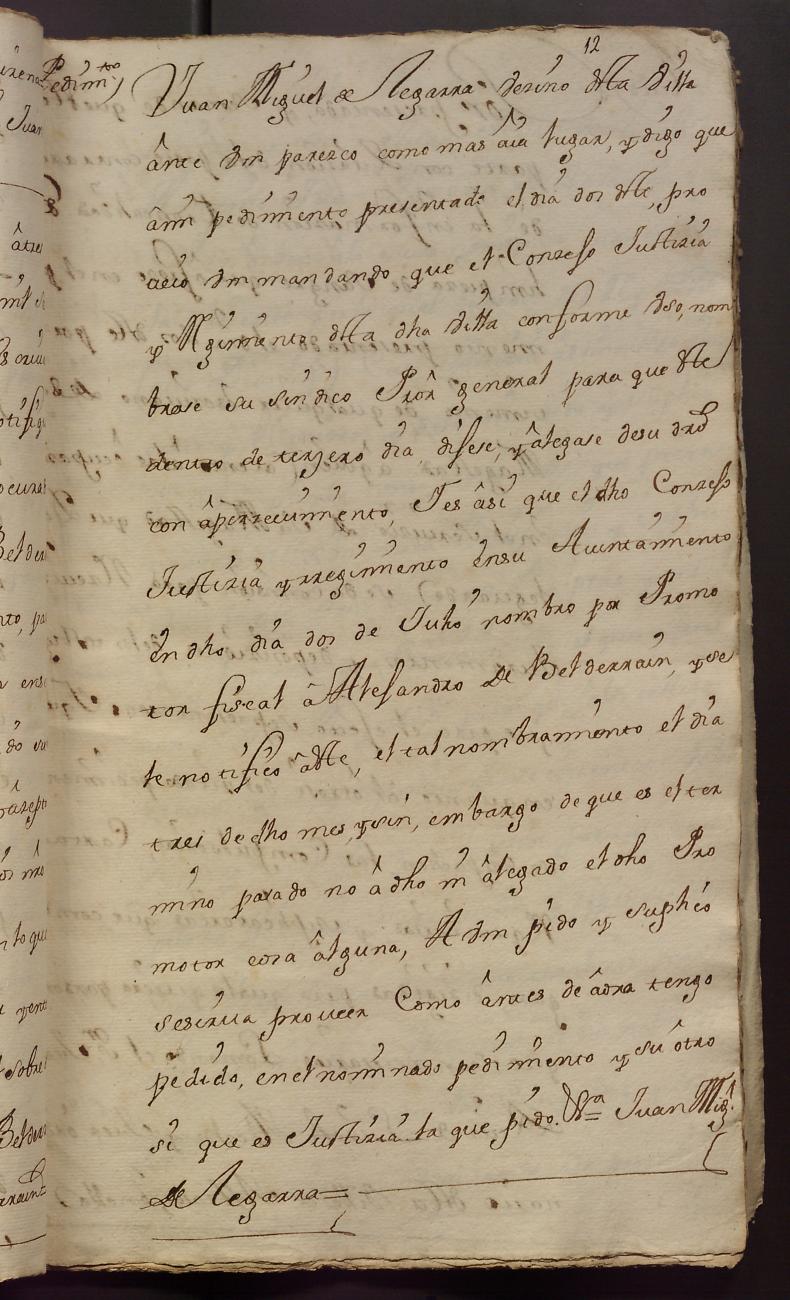 12
Pedimto
Juan Miguel de Legarra vezino desta Villa
ânte Vm parezco como mas âia lugar, y digo que
âmi pedimiento presentado el dia dos deste, pro
aeio Vm mandando que el Conzejo Justizia
y Regimiento desta dha Villa conforme Uso, nom
brase su sindico Pror general para que este
dentro de terzero dia, dijese, y âlegase desu dro
con âperzeuimiento, Ies âsi que el dho Conzejo
Justizia yrregimiento ensu Aiuntamiento
En dho dia dos de Julio nombro por Promo
tor fiscal â Alejandro de Belderrain, y se
le notifico âeste, el tal nombramiento el dia
tres de dho mes, y sin, embargo de que es el ter
mino pasado no â dho ni âlegado el dho Pro
motor cosa âlguna, A Vm pido y suplico
sesirua proueer Como ântes de âora tengo
pedido, en el nominado pedimiento y su ôtro
si que es Justizia la que pido. Juan Migl
de Legarra=
âtres
Juan